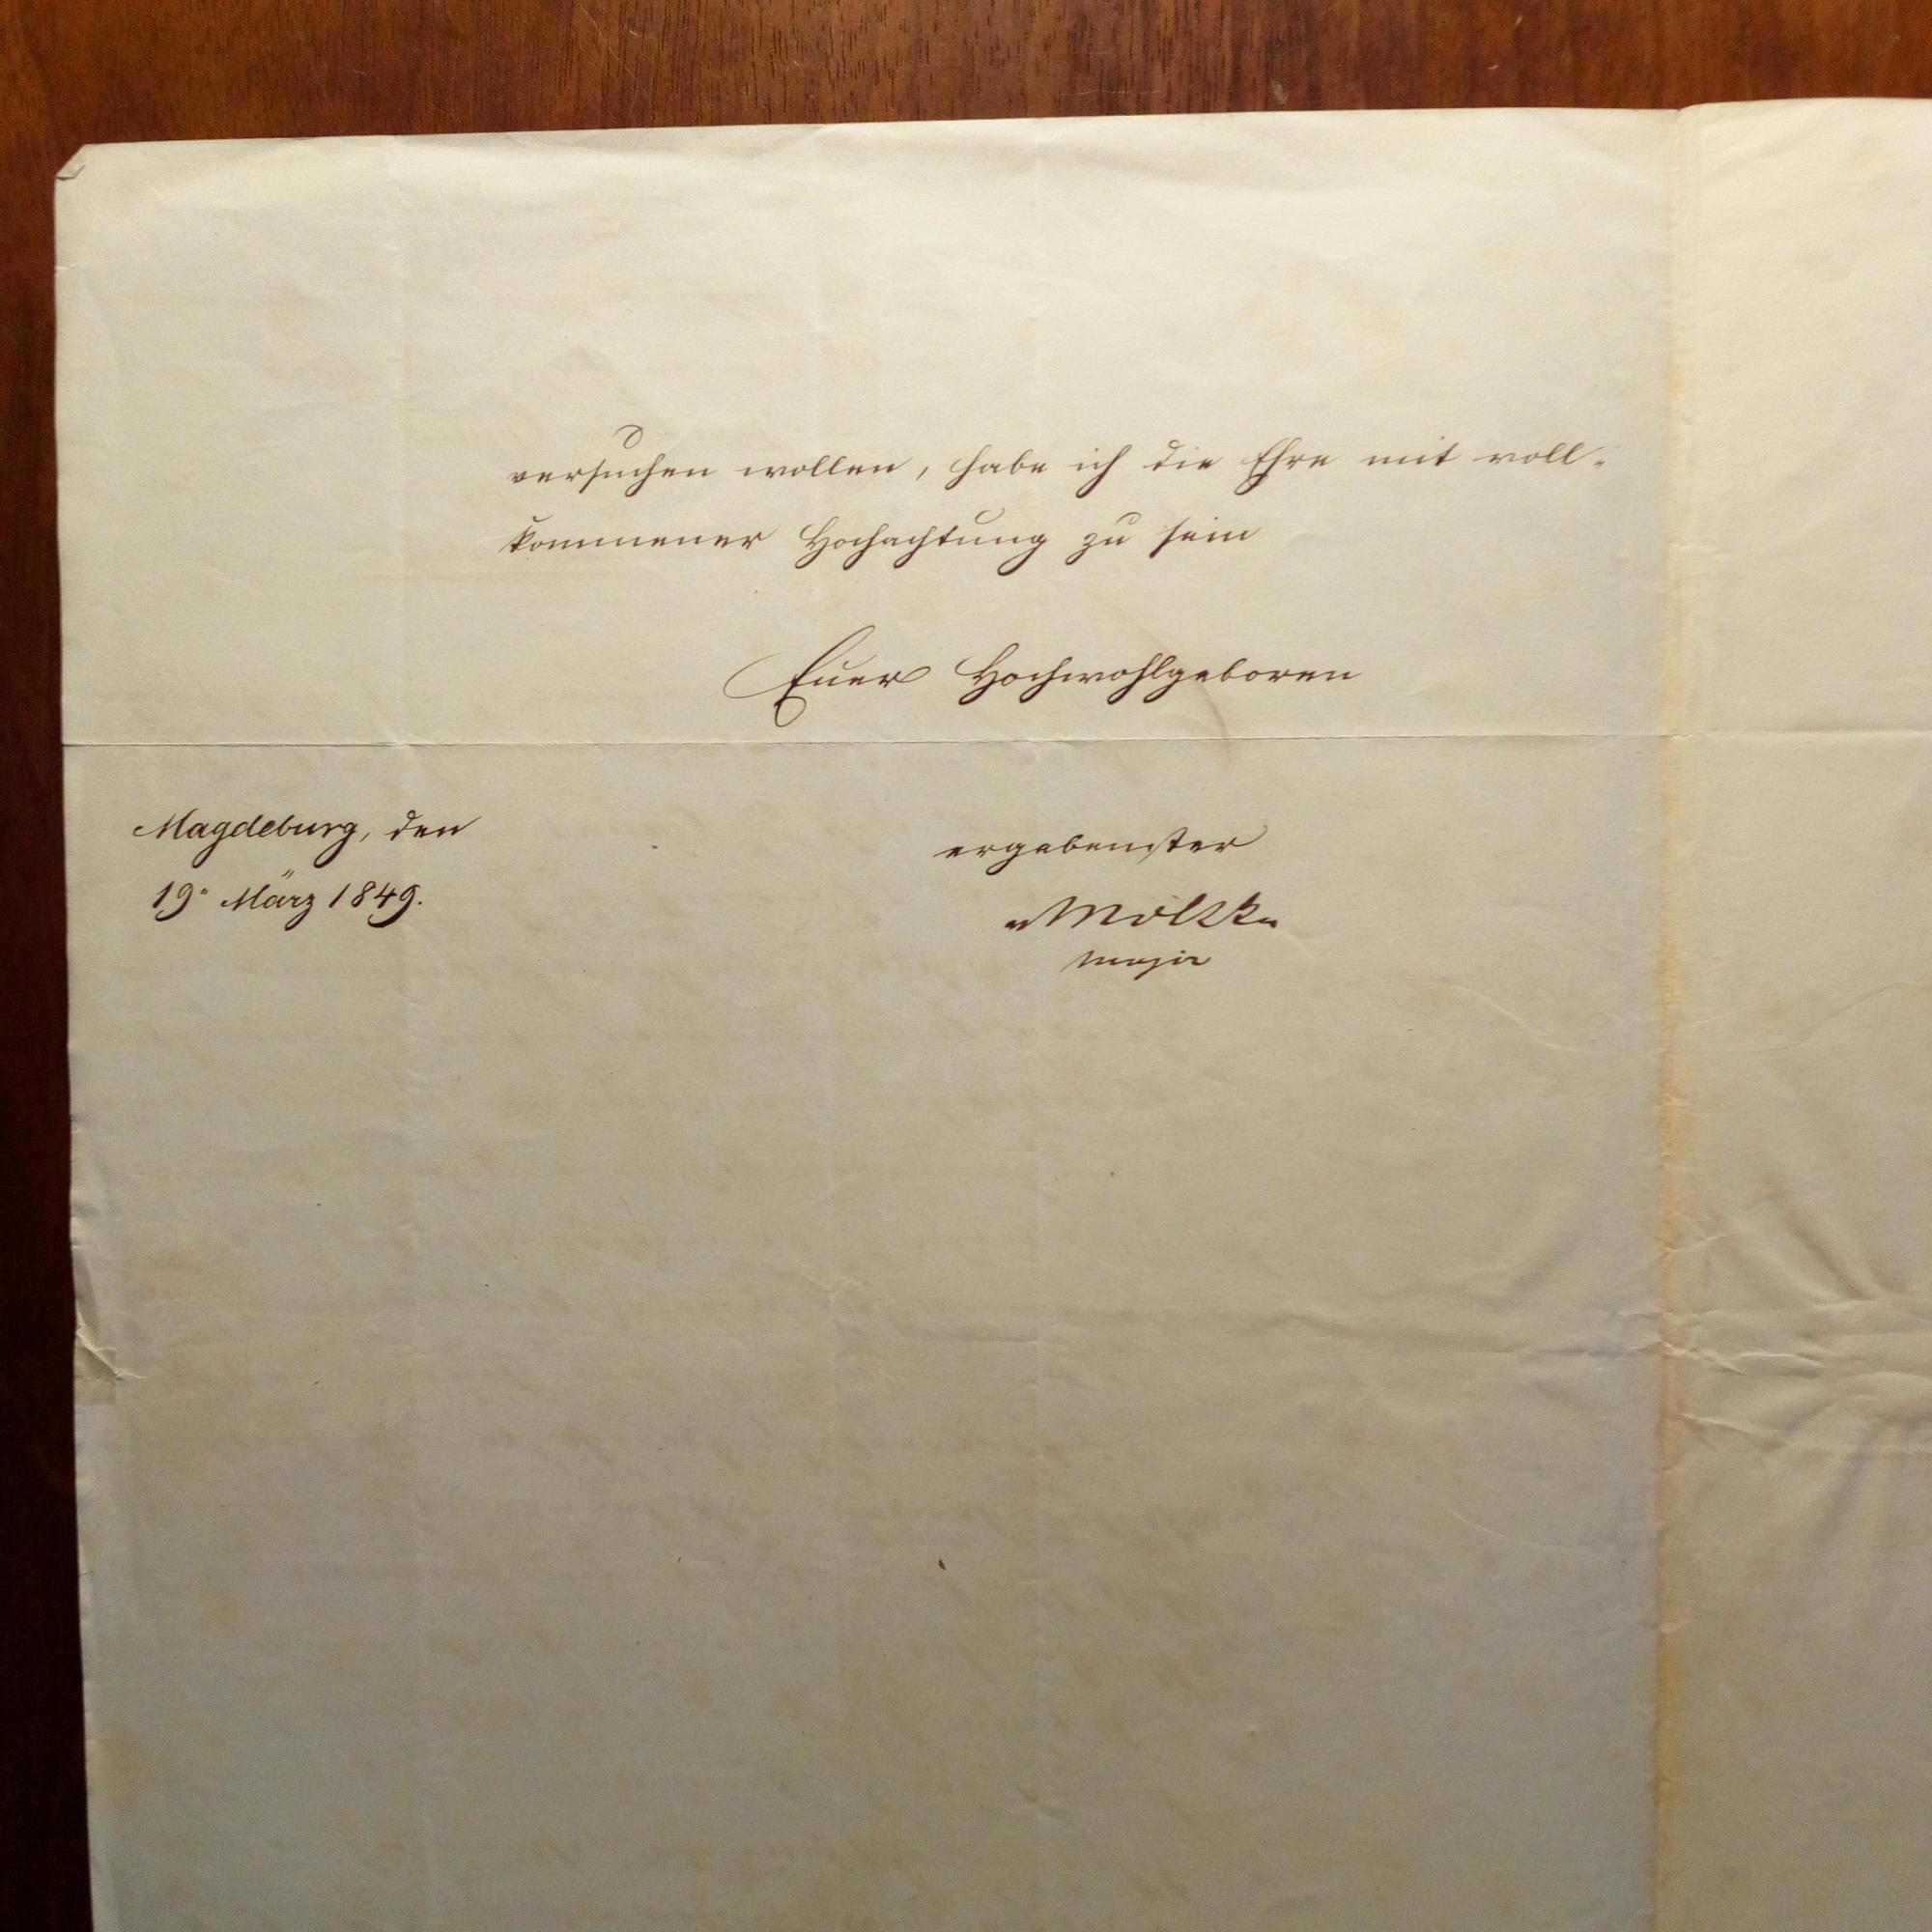 versuchen wollen, habe ich die Ehre mit voll-
kommener Hochachtung zu sein
Euer Hochwohlgeboren
Magdeburg, den
19. März 1849.
ergebenster
v Moltke
Major